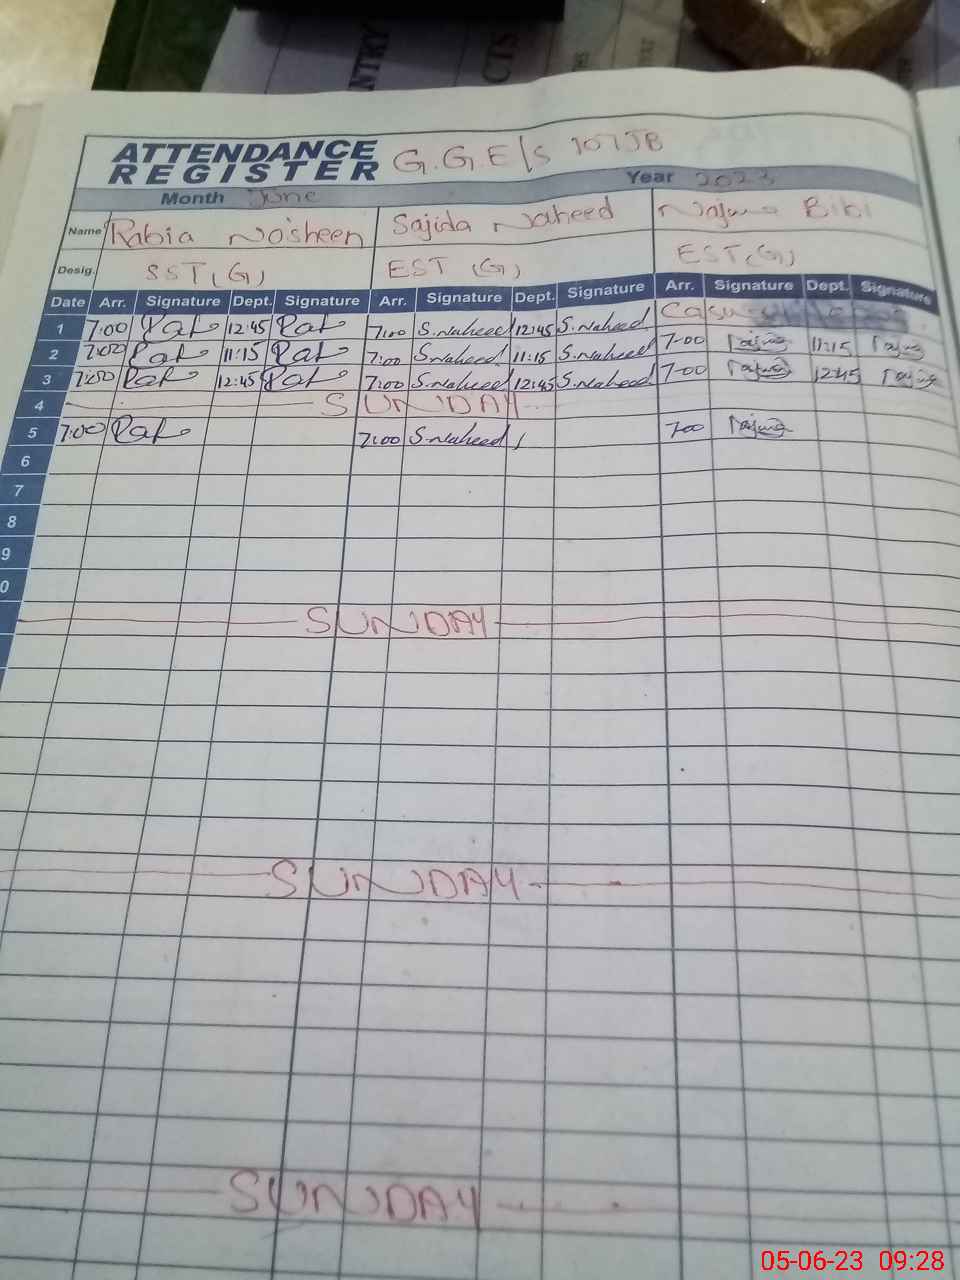 NTRY
CTS
ATTENDANCE
REGISTER G.G.E/S 107JB
Month June Year 2023
Name Rabia Nosheen Sajida Naheed Najma Bibi
Desig. SST(G) EST (G) EST(G)
Date Arr. Signature Dept. Signature Arr. Signature Dept. Signature Arr. Signature Dept. Signature
1 7:00 12:45 7:00 S.Naheed 12:45 S.Naheed
2 7:00 11:15 7:00 S.Naheed 11:15 S.Naheed 7-00 11:15
3 7:00 12:45 7:00 S.Naheed 12:45 S.Naheed 7-00 12:45
4 SUNDAY
5 7:00 7:00 S.Naheed 7-00
6
7
8
9
0
SUNDAY
SUNDAY
SUNDAY
05-06-23 09:28